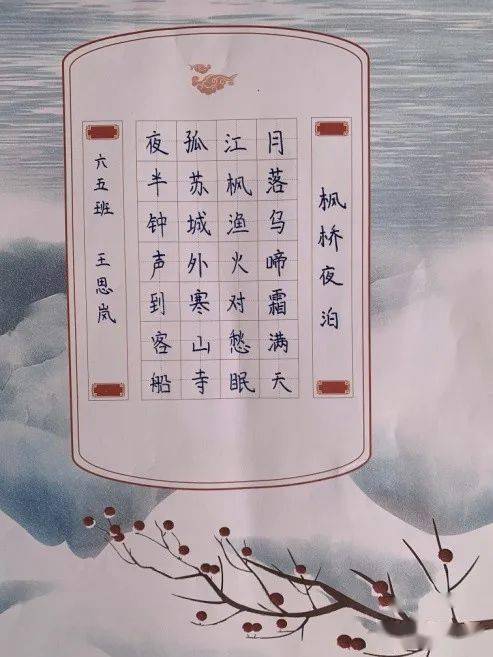 枫桥夜泊
月落乌啼霜满天
江枫渔火对愁眠
孤苏城外寒山寺
夜半钟声到客船
六五班 王思岚